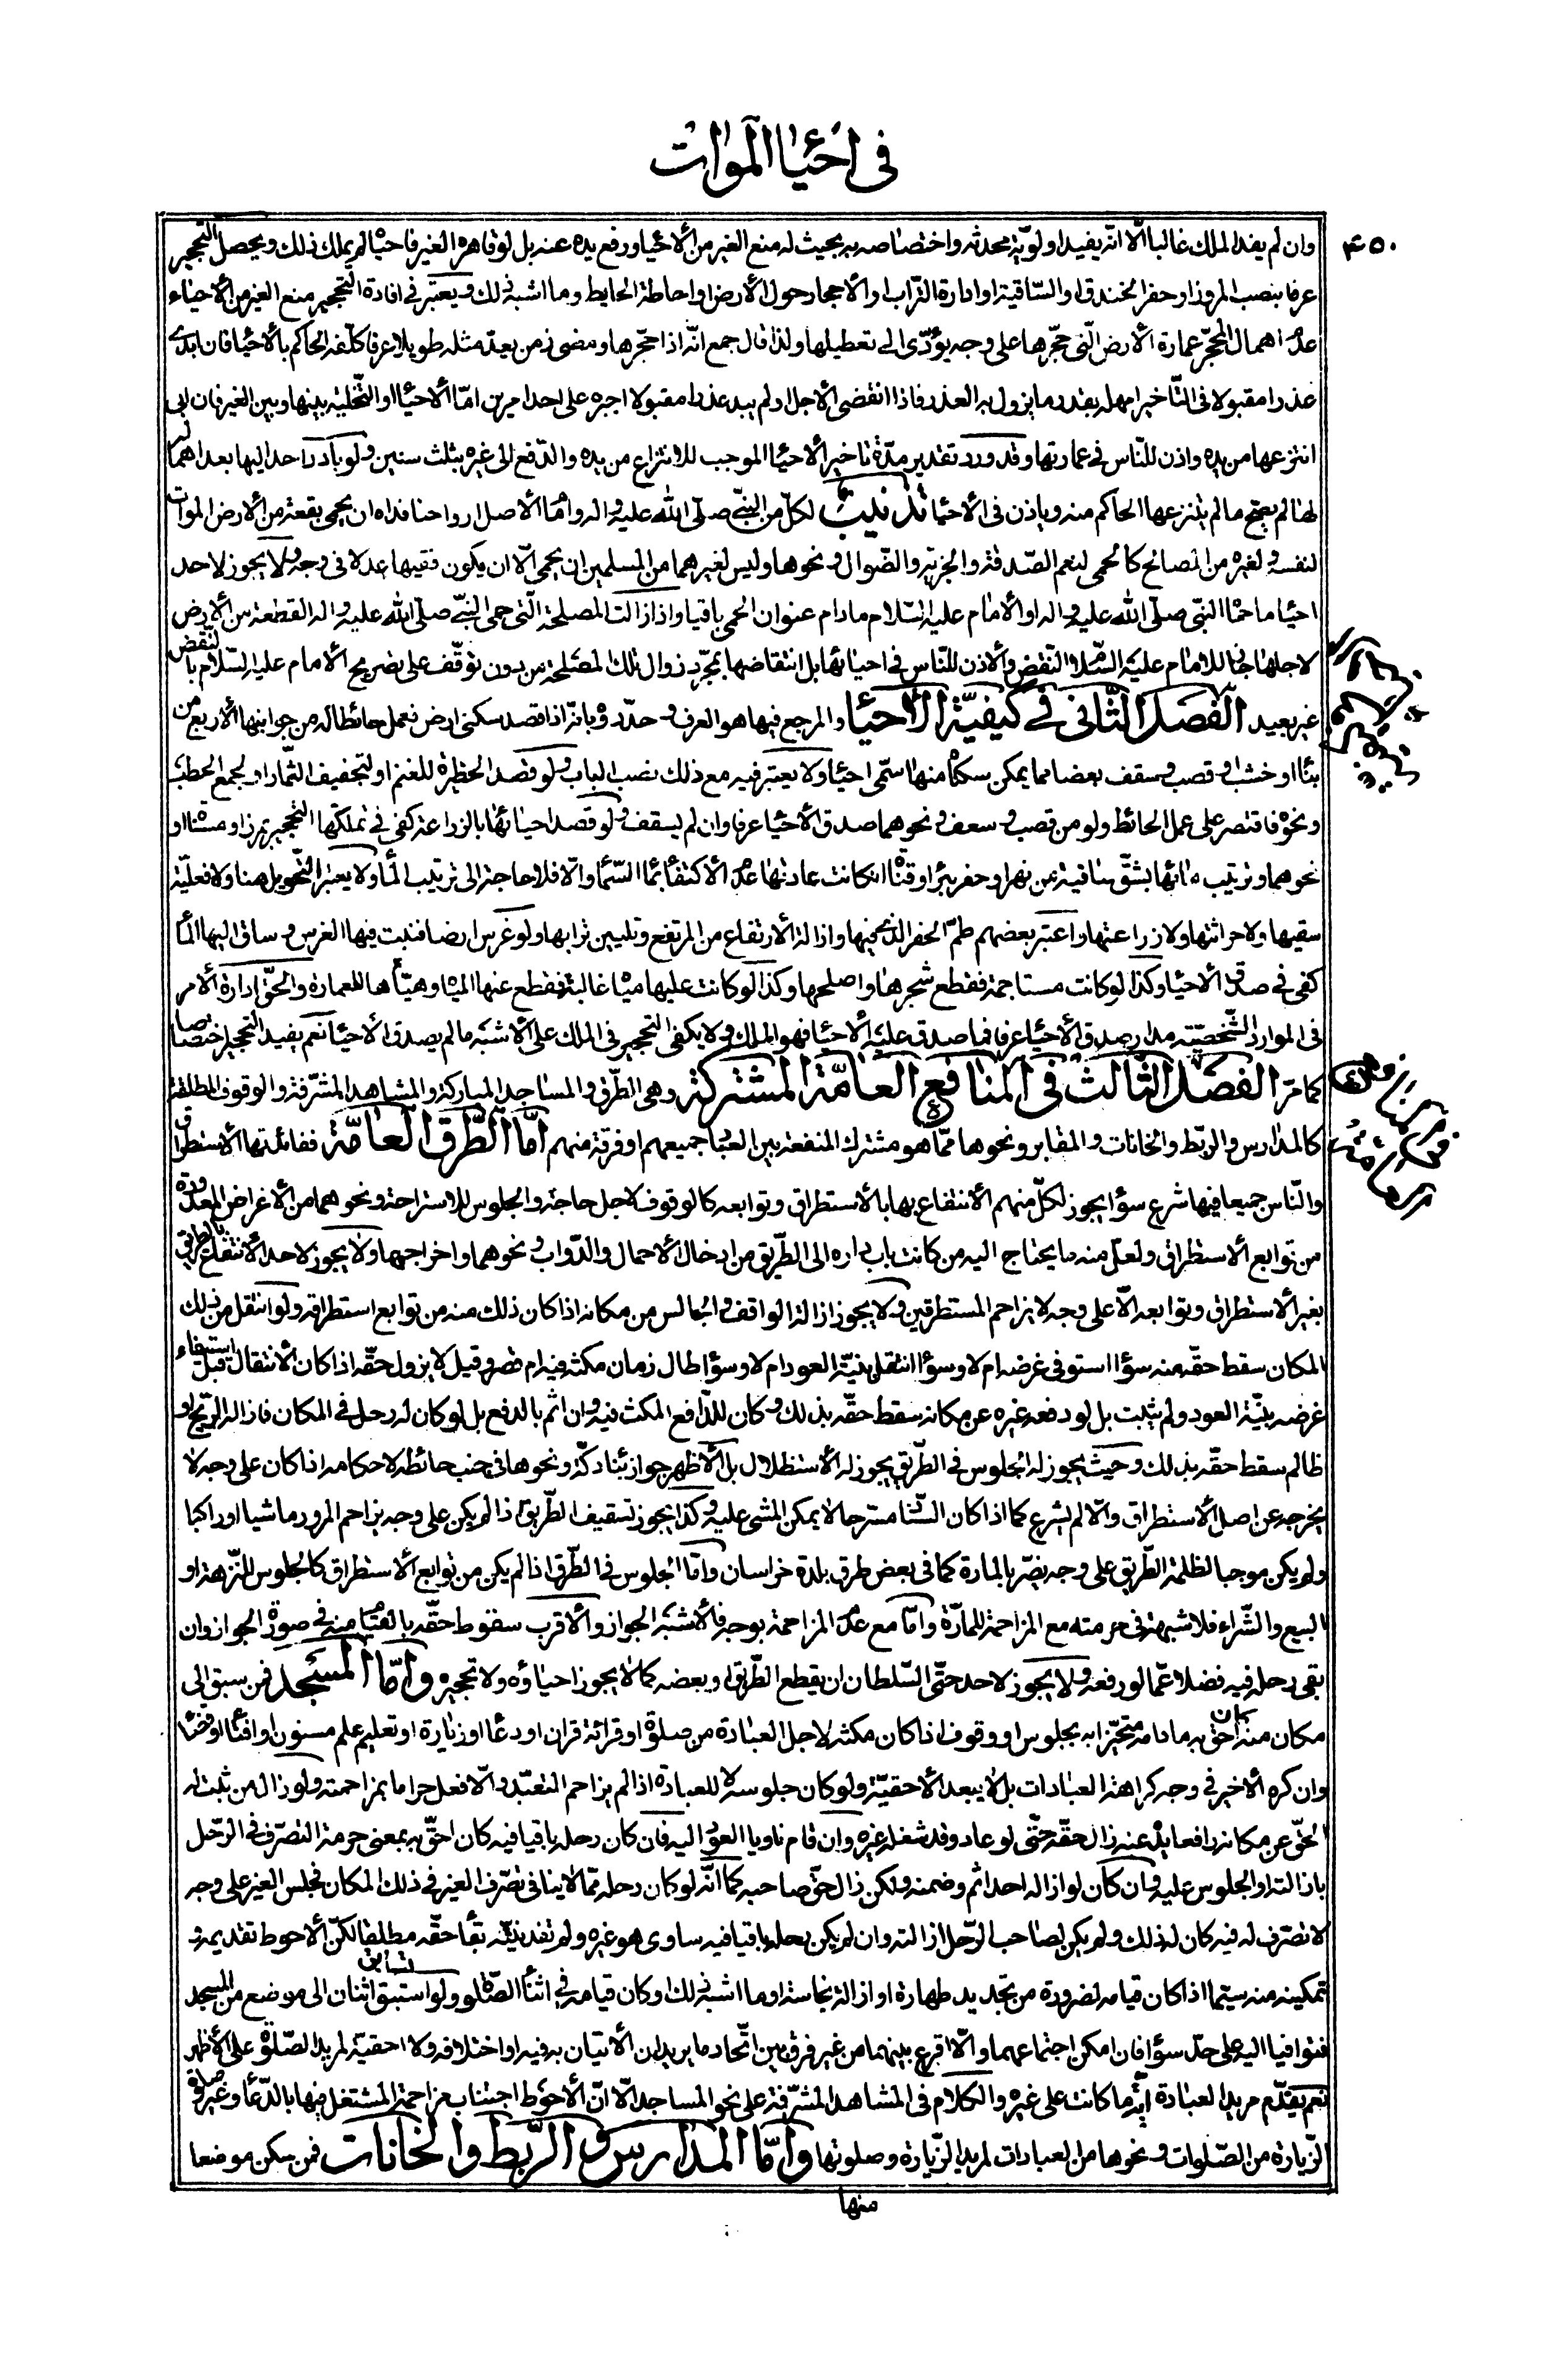 في احياء الموات
٤٥٠
وان لم يفد الملك غالبا الّا انّه يفيد اولويّة محدثه واختصاصه به بحيث له منع الغير من الأحياء ورفع يده عنه بل لو قاهره الغير فاحياه لم يملك ذلك ويحصل التحجير
عرفا بنصب المروز او حفر الخندق او السّاقية او ادارة التّراب او الأحجار حول الأرض او احاطة الحايط وما اشبه ذلك ويعتبر في افادة التحجير منع الغير من الأحياء
عدم اهمال المحجّر عمارة الأرض الّتي حجّرها على وجه يؤدّي الى تعطيلها ولذا قال جمع انّه اذا حجّرها ومضى زمن يعدّ مثله طويلا عرفا كلّفه الحاكم بالأحياء فان ابدى
عذرا مقبولا في التّأخير امهله بقدر ما يزول به العذر فاذا انقضى الأجل او لم يبد عذرا مقبولا اجبره على احد امرين امّا الأحياء او التّخلية بينها وبين الغير فان ابى
انتزعها من يده واذن للنّاس في عمارتها وقد ورد تقدير مدّة تأخير الأحياء الموجب للانتزاع من يده والدّفع الى غيره بثلث سنين ولو بادر احد اليها بعد اهماله
لها لم يصح ما لم ينتزعها الحاكم منه وياذن في الأحياء تذنيب لكلّ من النبيّ صلّى الله عليه واله وامام الأصل ارواحنا فداه ان يحمي بقعة من الأرض الموات
لنفسه ولغيره من المصالح كالحمى لنعم الصّدقة والجزية والضّوال ونحوها وليس لغيرهما من المسلمين ان يحمي الّا ان يكون فقيها عدلا في وجه ولا يجوز لاحد
احياء ما حماه النبّي صلّى الله عليه واله او الأمام عليه السّلام مادام عنوان الحمى باقيا واذا زالت المصلحة الّتي حمى النبيّ صلّى الله عليه واله القطعة من الأرض
لاجلها جاز للامام عليه السّلام النّقض والأذن للنّاس في احيائها بل انتقاضها بمجرّد زوال تلك المصلحة من دون توقّف على تصريح الأمام عليه السّلام بالنّقض
غير بعيد الفصل الثّاني في كيفيّة الأحياء والمرجع فيها هو العرف وحدّدوه بانّه اذا قصد سكنى ارض فعمل حائطا له من جوانبها الأربع من
بناء او خشب او قصب وسقف بعضا مما يمكن سكناه منها سمّى احياء ولا يعتبر فيه مع ذلك نصب الباب ولو قصد الحظيرة للغنم او لتجفيف الثّمار او لجمع الحطب
ونحوه فاقتصر على عمل الحائط ولو من قصب وسعف ونحوهما صدق الأحياء عرفا وان لم يسقف ولو قصد احيائها بالزراعة كفى في تملّكها التحجير بمرز او مسنّاة او
نحوهما وترتيب مائها بشقّ ساقية من نهر او حفر بئر او قناة ان كانت عادتها عدم الأكتفاء بماء السّماء والّا فلا حاجة الى ترتيب الماء ولا يعتبر التّحويل هنا ولا فعليّة
سقيها ولا حراثتها ولا زراعتها واعتبر بعضهم طمّ الحفر الّتي فيها وازالة الأرتفاع من المرتفع وتليين ترابها ولو غرس ارضا فنبت فيها الغرس وساق اليها الماء
كفى في صدق الأحياء وكذا لو كانت مستاجمة فقطع شجرها واصلحها وكذا لو كانت عليها مياه غالبة فقطع عنها المياه وهيّأها للعمارة والحقّ ادارة الأمر
في الموارد الشّخصيّة مدار صدق الأحياء عرفا فما صدق عليه الأحياء فهو الملك ولا يكفي التحجير في الملك على الأشبه ما لم يصدق الأحياء نعم يفيد التحجير اختصاصا
كما مرّ الفصل الثّالث في المنافع العامّة المشتركة وهي الطّرق والمساجد المباركة والمشاهد المشرّفة والوقوف المطلقة
كالمدارس والربّط والخانات والمقابر ونحوها ممّا هو مشترك المنفعة بين العباد جميعهم او فرقة منهم امّا الطّرق العامّة ففائدتها الأستطراق
والنّاس جميعا فيها شرع سواء يجوز لكلّ منهم الأنتفاع بها بالأستطراق وتوابعه كالوقوف لاجل حاجة والجلوس للاستراحة ونحوهما من الأغراض المعدودة
من توابع الأستطراق ولعلّ منه ما يحتاج اليه من كانت باب داره الى الطّريق من ادخال الأحمال والدّواب ونحوهما واخراجها ولا يجوز لاحد الأنتفاع بالطّرق
بغير الأستطراق وتوابعه الّا على وجه لا يزاحم المستطرقين ولا يجوز ازالة الواقف والجالس من مكانه اذا كان ذلك منه من توابع استطراقه ولو انتقل من ذلك
المكان سقط حقّه منه سواء استوفى غرضه ام لا وسواء انتقل بنيّة العود ام لا وسواء طال زمان مكثه فيه ام قصر وقيل لا يزول حقّه اذا كان الأنتقال قبل استيفاء
غرضه بنيّة العود ولم يثبت بل لو دفعه غيره عن مكانه سقط حقّه بذلك وكان للدّافع المكث فيه وان اثم بالدفع بل لو كان له رحل في المكان فازاله الرّيح او
ظالم سقط حقّه بذلك وحيث يجوز له الجلوس في الطّريق يجوز له الأستظلال بل الأظهر جواز بناء دكّة ونحوها في جنب حائطه لاحكامه اذا كان على وجه لا
يخرجه عن اصل الأستطراق والّا لم يشرع كما اذا كان البناء مسرّحا لا يمكن المشي عليه وكذا يجوز تسقيف الطّريق اذا لم يكن على وجه يزاحم المرور ماشيا او راكبا
ولم يكن موجبا لظلمة الطّريق على وجه يضرّ بالمارة كما في بعض طرق بلدة خراسان وامّا الجلوس في الطّرق اذا لم يكن من توابع الأستطراق كالجلوس للنّزهة او
البيع والشّراء فلا شبهة في حرمته مع المزاحمة للمارّة وامّا مع عدم المزاحمة بوجه فالأشبه الجواز والأقرب سقوط حقّه بالقيام منه في صورة الجواز وان
بقي رحله فيه فضلا عمّا لو رفعه ولا يجوز لاحد حتّى السّلطان ان يقطع الطّريق او بعضه كما لا يجوز احياؤه ولا تحجيره وامّا المسجد فمن سبق الى
مكان منه كان احقّ به مادام متحيّزا به بجلوس او وقوف اذا كان مكثه لاجل العبادة من صلوة او قرائة قران او دعاء او زيارة او تعليم علم مسنون او افتاء او قضاء
وان كره الأخير في وجه كراهة العبادات بل لا يبعد الأحقيّة ولو كان جلوسه لا للعبادة اذا لم يزاحم التعبّد والّا فعل حراما بمزاحمته ولو زال من ثبت له
الحقّ عن مكانه رافعا يده عنه زال حقّه حتّى لو عاد وقد شغله غيره وان قام ناويا العود اليه فان كان رحله باقيا فيه كان احقّ به بمعنى حرمة التصرّف في الرّحل
بازالته او الجلوس عليه وان كان لو ازاله احد اثم وضمنه ولكن زال حقّ صاحبه كما انّه لو كان رحله ممّا لا ينافي تصّرف الغير في ذلك المكان فجلس الغير على وجه
لا تصّرف له فيه كان له ذلك ولم يكن لصاحب الرّحل ازالته وان لم يكن رحله باقيا فيه ساوى هو غيره ولم تفد نيّته بقاء حقّه مطلقا لكنّ الأحوط تقديمه و
تمكينه منه سيّما اذا كان قيامه لضرورة من تجديد طهارة او ازالة نجاسة او ما اشبه ذلك او كان قيامه في اثناء الصّلوة ولو استبق اثنان الى موضع من المسجد
فتوافيا اليه على حدّ سواء فان امكن اجتماعهما والّا اقرع بينهما من غير فرق بين اتّحاد ما يريدان الأتيان به فيه او اختلافه ولا احقيّة لمريد الصّلوة على الأظهر
نعم يقدّم مريد العبادة ايّة ما كانت على غيره والكلام في المشاهد المشرّفة على نحو المساجد الّا انّ الأحوط اجتناب مزاحمة المشتغل فيها بالدّعاء وغير صلوة
الزّيارة من الصّلوات ونحوها من العبادات لمريد الزّيارة وصلوتها وامّا المدارس والرّبط والخانات فمن سكن موضعا
منها